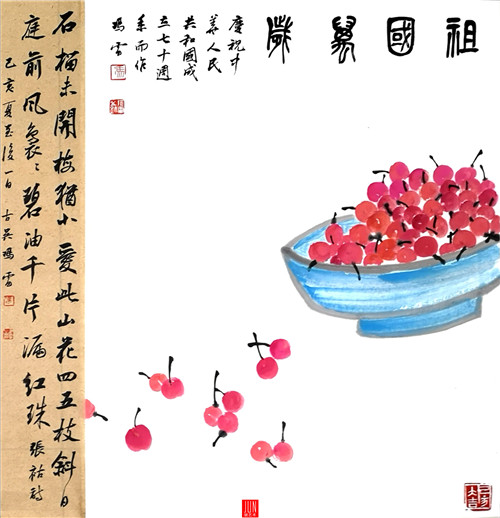 祖國萬歲
慶祝中
華人民
共和國成
立七十週
年而作
瑪雪
石榴未開梅猶小愛此山花四五枝斜日
庭前風裊裊碧油千片漏紅珠 張祜詩
己亥夏至後一日 古吳瑪雪